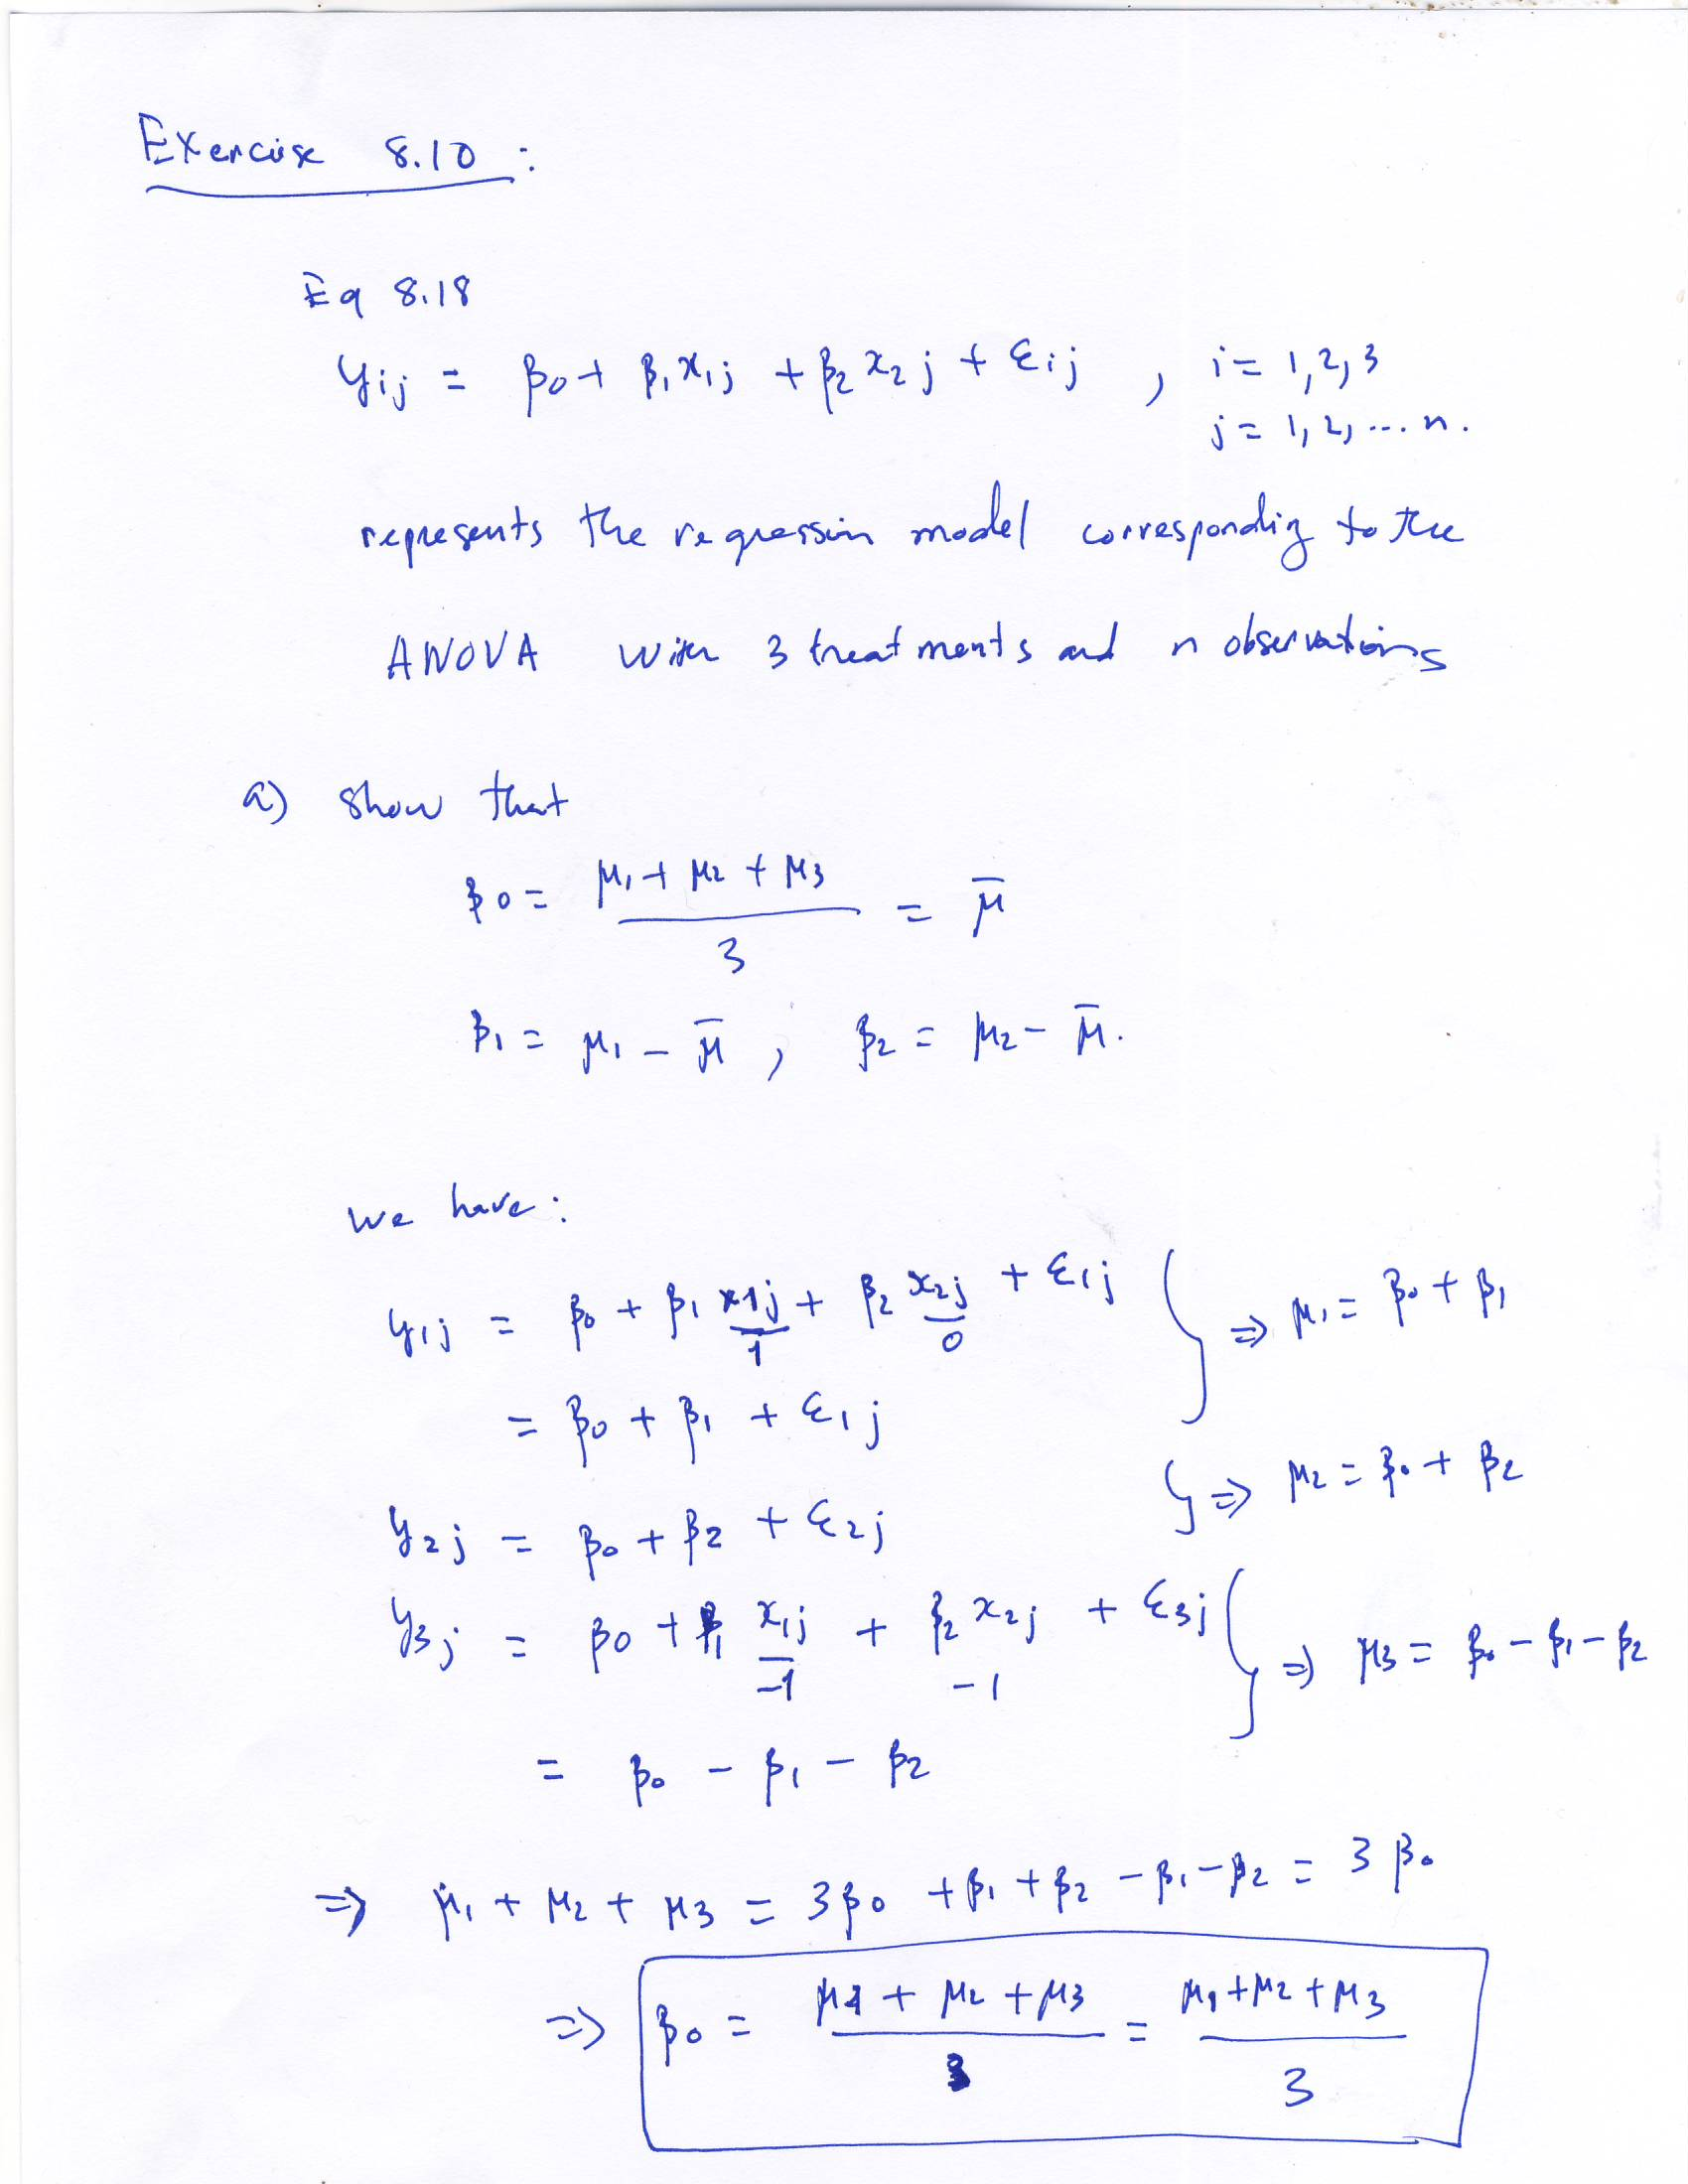 Exercise 8.10 :
Eq 8.18
yij = β0 + β1 x1j + β2 x2j + εij , i = 1,2,3
j = 1, 2, ... n.
represents the regression model corresponding to the
ANOVA with 3 treatments and n observations
a) show that
β0 = μ1 + μ2 + μ3 / 3 = μ̄
β1 = μ1 - μ̄ , β2 = μ2 - μ̄.
we have :
y1j = β0 + β1 x1j + β2 x2j + ε1j } ⇒ μ1 = β0 + β1
1 0
= β0 + β1 + ε1j
y2j = β0 + β2 + ε2j } ⇒ μ2 = β0 + β2
y3j = β0 + β1 x1j + β2 x2j + ε3j } ⇒ μ3 = β0 - β1 - β2
-1 -1
= β0 - β1 - β2
⇒ μ1 + μ2 + μ3 = 3β0 + β1 + β2 - β1 - β2 = 3β0
⇒ β0 = μ1 + μ2 + μ3 / 3 = μ1 + μ2 + μ3 / 3